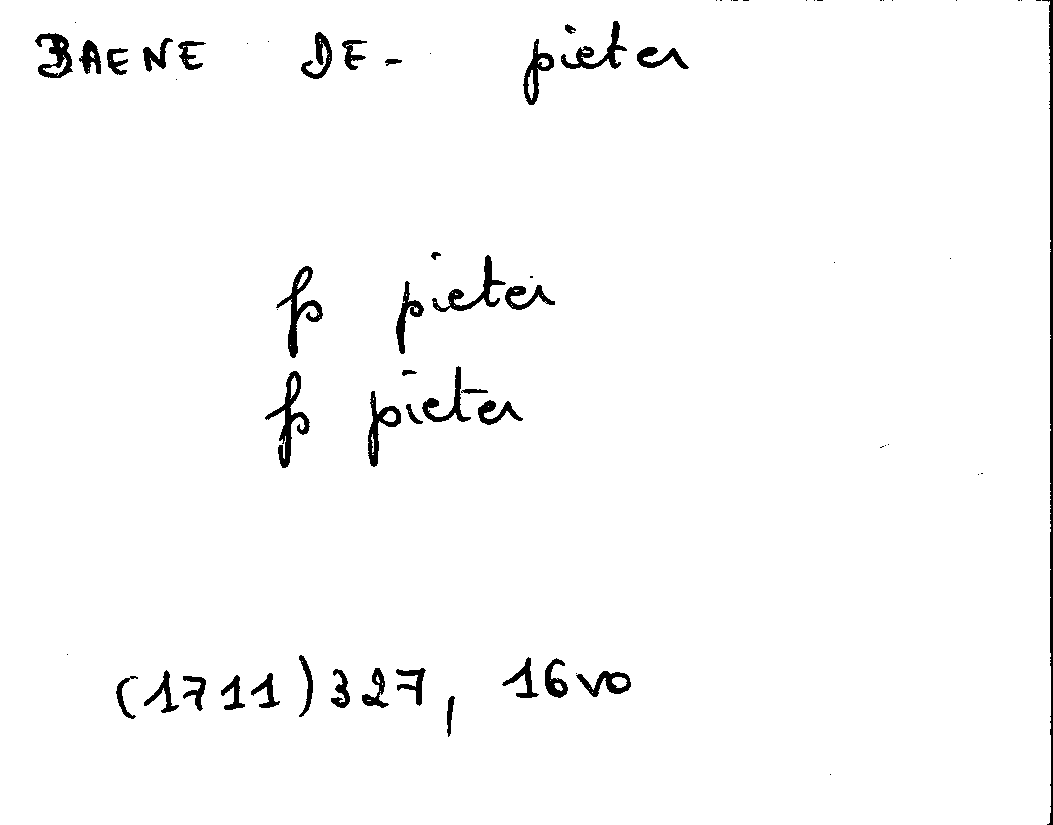 BAENE DE- pieter
fs pieter
fs pieter
(1711) 327, 16vo